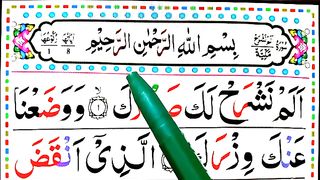 بِسْمِ اللهِ الرَّحْمٰنِ الرَّحِيْمِ
اَلَمْ نَشْرَحْ لَكَ صَدْرَكَ ۙ وَوَضَعْنَا
عَنْكَ وِزْرَكَ ۙ الَّذِيْٓ اَنْقَضَ